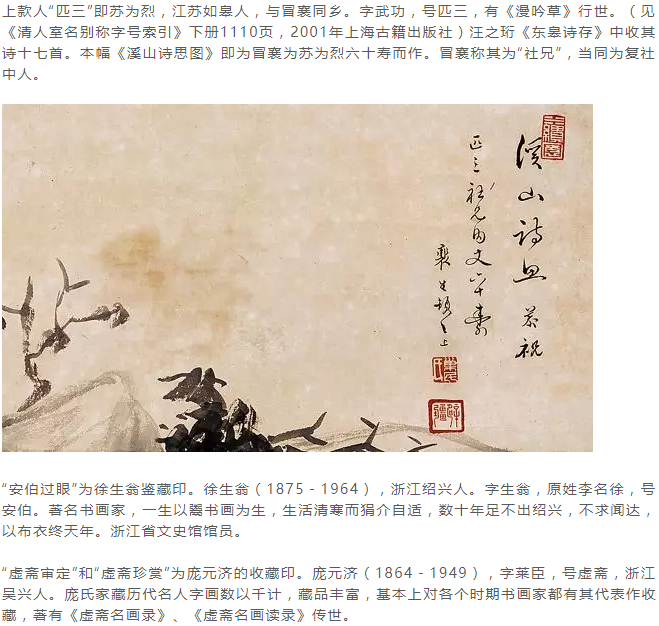 上款人“匹三”即苏为烈，江苏如皋人，与冒襄同乡。字武功，号匹三，有《漫吟草》行世。（见
《清人室名别称字号索引》下册1110页，2001年上海古籍出版社）汪之珩《东皋诗存》中收其
诗十七首。本幅《溪山诗思图》即为冒襄为苏为烈六十寿而作。冒襄称其为“社兄”，当同为复社
中人。
溪山詩思 恭祝
匹三社兄内丈六十壽
襄 上
“安伯过眼”为徐生翁鉴藏印。徐生翁（1875－1964），浙江绍兴人。字生翁，原姓李名徐，号
安伯。著名书画家，一生以鬻书画为生，生活清寒而狷介自适，数十年足不出绍兴，不求闻达，
以布衣终天年。浙江省文史馆馆员。
“虚斋审定”和“虚斋珍赏”为庞元济的收藏印。庞元济（1864－1949），字莱臣，号虚斋，浙江
吴兴人。庞氏家藏历代名人字画数以千计，藏品丰富，基本上对各个时期书画家都有其代表作收
藏，著有《虚斋名画录》、《虚斋名画读录》传世。